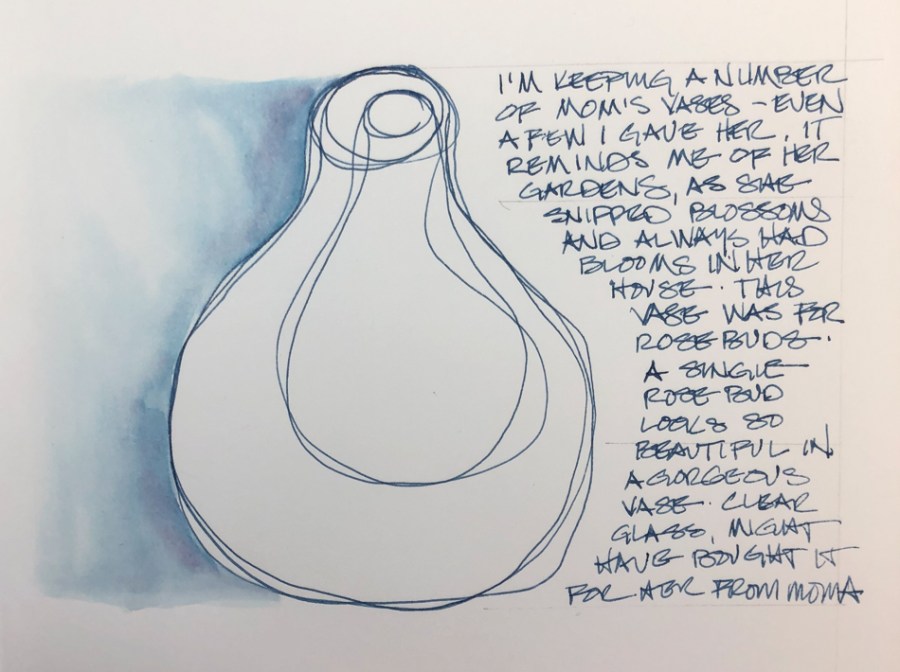 I'M KEEPING A NUMBER
OF MOM'S VASES - EVEN
A FEW I GAVE HER. IT
REMINDS ME OF HER
GARDENS, AS SHE
SNIPPED BLOSSOMS
AND ALWAYS HAD
BLOOMS IN HER
HOUSE. THIS
VASE WAS FOR
ROSE BUDS.
A SINGLE
ROSE BUD
LOOKS SO
BEAUTIFUL IN
A GORGEOUS
VASE. CLEAR
GLASS, MIGHT
HAVE BOUGHT IT
FOR HER FROM MOMA